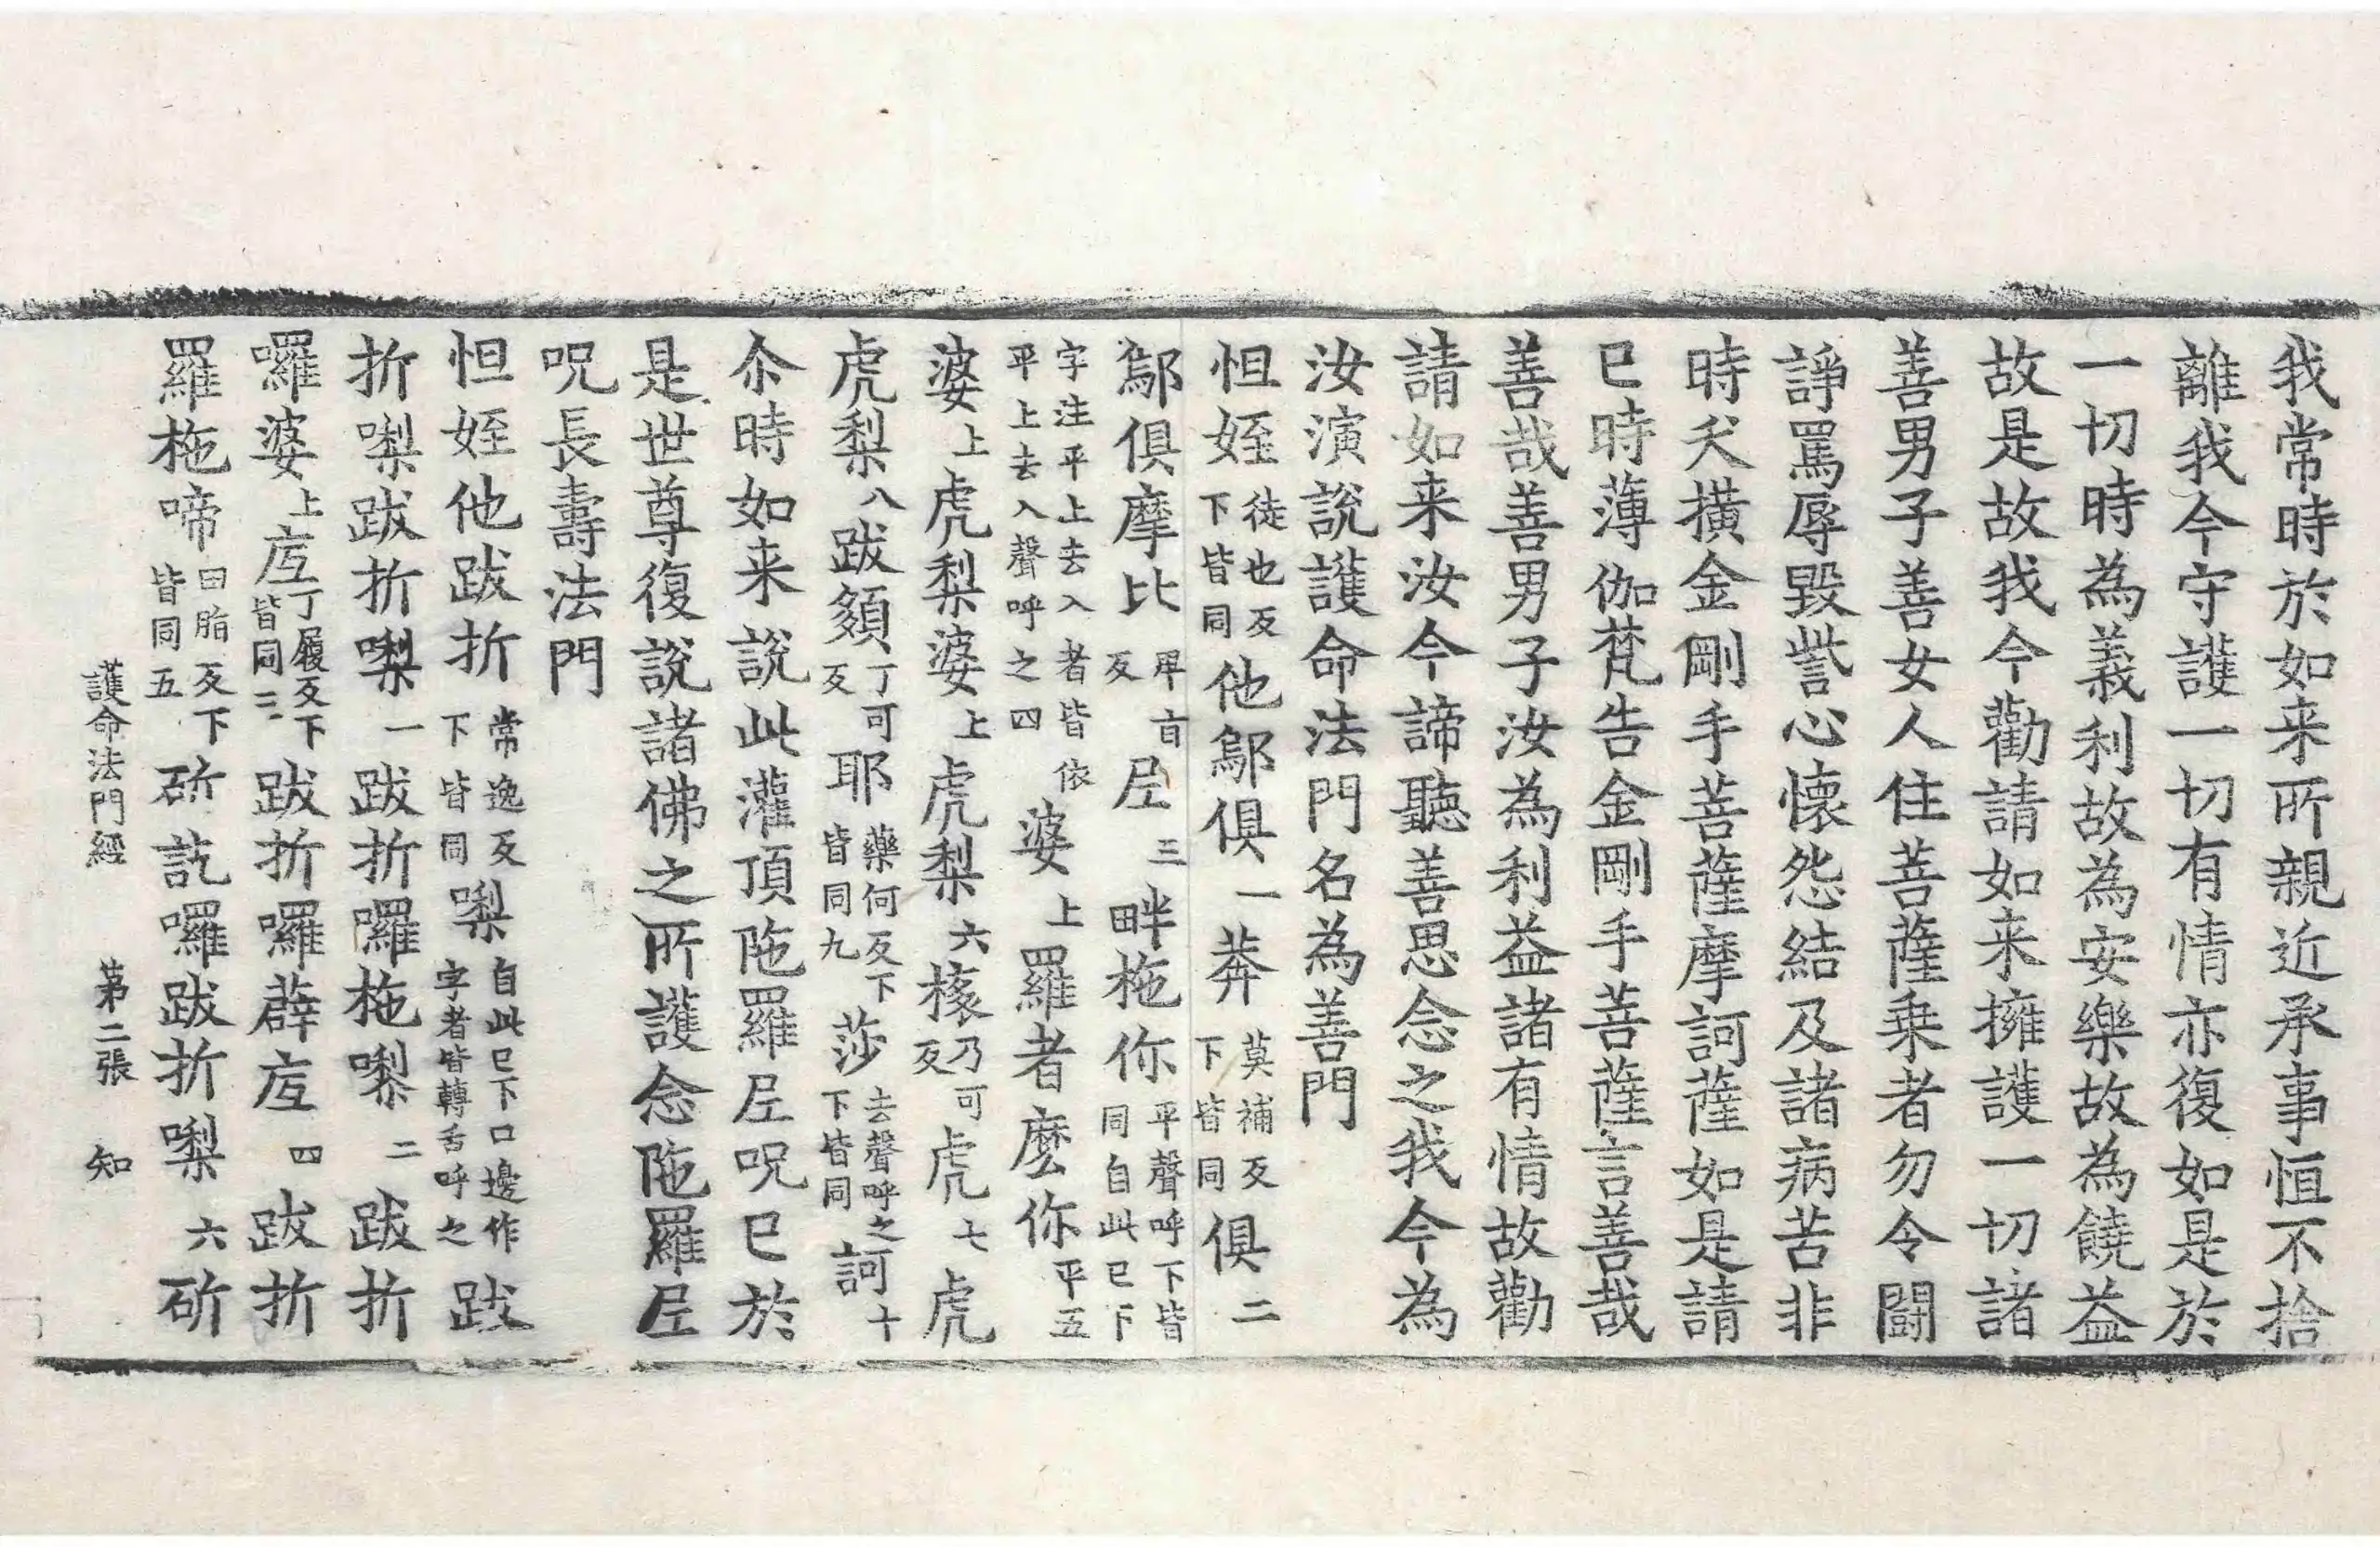 我常時於如来所親近承事恒不捨
離我今守護一切有情亦復如是於
一切時為義利故為安樂故為饒益
故是故我今勸請如来擁護一切諸
善男子善女人住菩薩乗者勿令鬪
諍罵辱毀訾心懷怨結及諸病苦非
時夭橫金剛手菩薩摩訶薩如是請
已時薄伽梵告金剛手菩薩言善哉
善哉善男子汝為利益諸有情故勸
請如来汝今諦聽善思念之我今為
汝演說護命法門名為善門
怛姪徒也反下皆同他鄔俱一莽莫補反下皆同俱二
鄔俱摩比畀亩反𡰱三畔柂你平聲呼下皆同自此已下
字注平上去入者皆依平上去入聲呼之四婆上羅者麼你平五
婆上虎梨婆上虎梨六㮈乃可反虎七虎
虎梨八跋䫂丁可反耶藥何反下皆同九莎去聲呼之下皆同訶十
尒時如来說此灌頂陁羅𡰱呪已於
是世尊復說諸佛之所護念陁羅𡰱
呪長壽法門
怛姪他跋折常逸反下皆同㗚自此已下口邊作字者皆轉舌呼之跋
折㗚跋折㗚一跋折囉柂嚟二跋折
囉婆上䧑丁履反下皆同三跋折囉薜䧑四跋折
羅柂啼田脂反下皆同五斫訖囉跋折㗚六斫
護命法門經 第二張 知